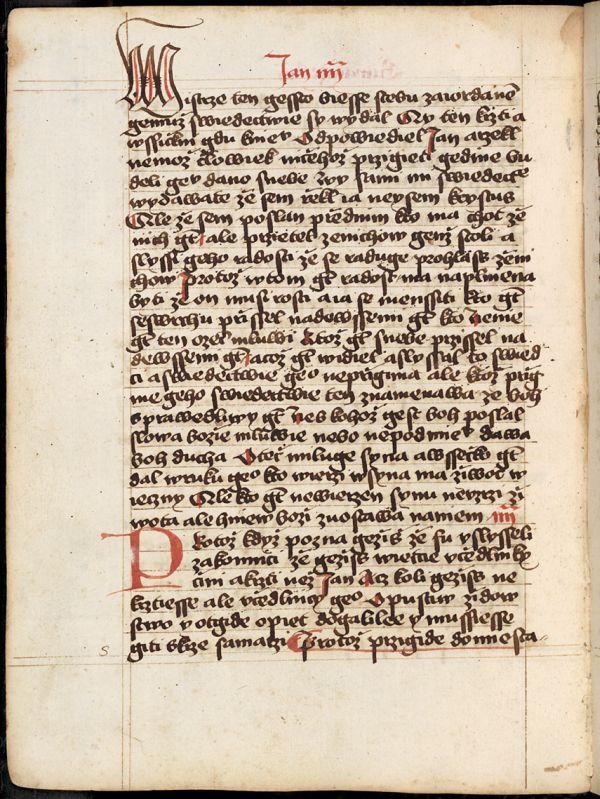 Jan iiii
Mistrze ten gessto biesse stebu zaiordanē
gemuz swiedectwie sy wydal Ay ten krzti a
wssickni gdu knev Odpowiediel Jan arzekl
nemoz cżlowiek nicehoz przigieti gedine bu
deli gey dano snebe wy sami mi swiedecze
wydawate ze sem rekl ia neysem krystus
Ale ze sem poslan przednim kto ma chot ze
nich gt ale przietel zenichow genz stoli a
slyssi geho radosti ze se raduge prohlass zeni
chow protoz wtom gt radost ma naplniena
byti ze on musi rosti a ia se menssiti kto gt
seswrchu prissel nadewssemi gt kto zeme
gt ten ozemi mluwi ktoz gt snebe przissel na
dewssemi gt Jacoz gt widiel a slyssal to swied
ci a swiedectwie geo neprigima ale ktoz prig
me geho swiedectwie ten znamenawa ze boh
sprawedliwy gt nes kohoz gest boh poslal
slowa bozie mluwie nebo nepodmiev dawa
boh ducha Otec miluge syna a wssecko gt
dal wruku geo kto wierzi wsyna ma ziwot w
ieczny Ale kto gt newierzen synu nevzrzi zi
wota ale hniew bozi zuostawa nanem iiii
Protoz kdyz pozna gezis ze su vslysseli
zakonnici ze gezis wietcie vcedlniky
cini a krzti nez Jan Acz koli gezis ne
krztiesse ale vcedlnicy geo Opustiw zidow
stwo y otgide opiet dogalilee y mussiesse
giti skrze samarzi Protoz przigide do miesta